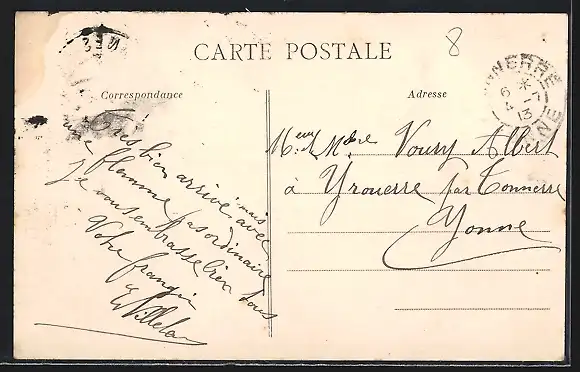 CARTE POSTALE
8
Correspondance
Adresse
TONNERRE
6 *
4 -7
13
YONNE
Très bien arrivé, mais
une flemme pas ordinaire
Je vous embrasse bien tous
Votre
Meur Mdme Voury Albert
à Yrouerre par Tonnerre
Yonne